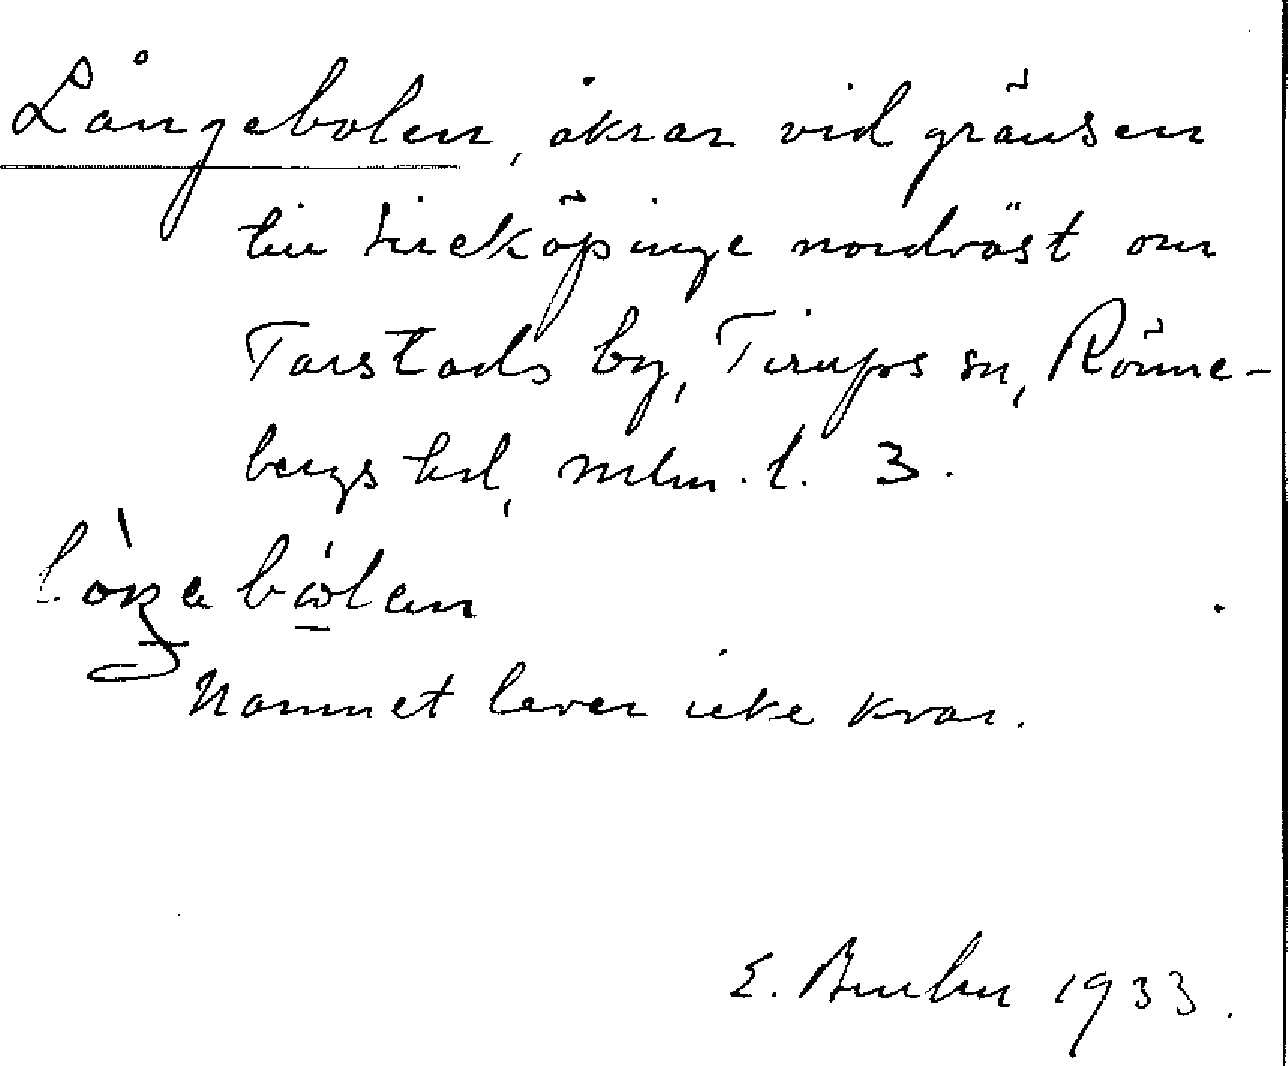 Långebolen, åkrar vid gränsen
till Sireköpinge nordväst om
Tarstads by, Tirups sn, Rönne-
bergs hd, mlm. l. 3.
Namnet lever icke kvar.
E. 1933.